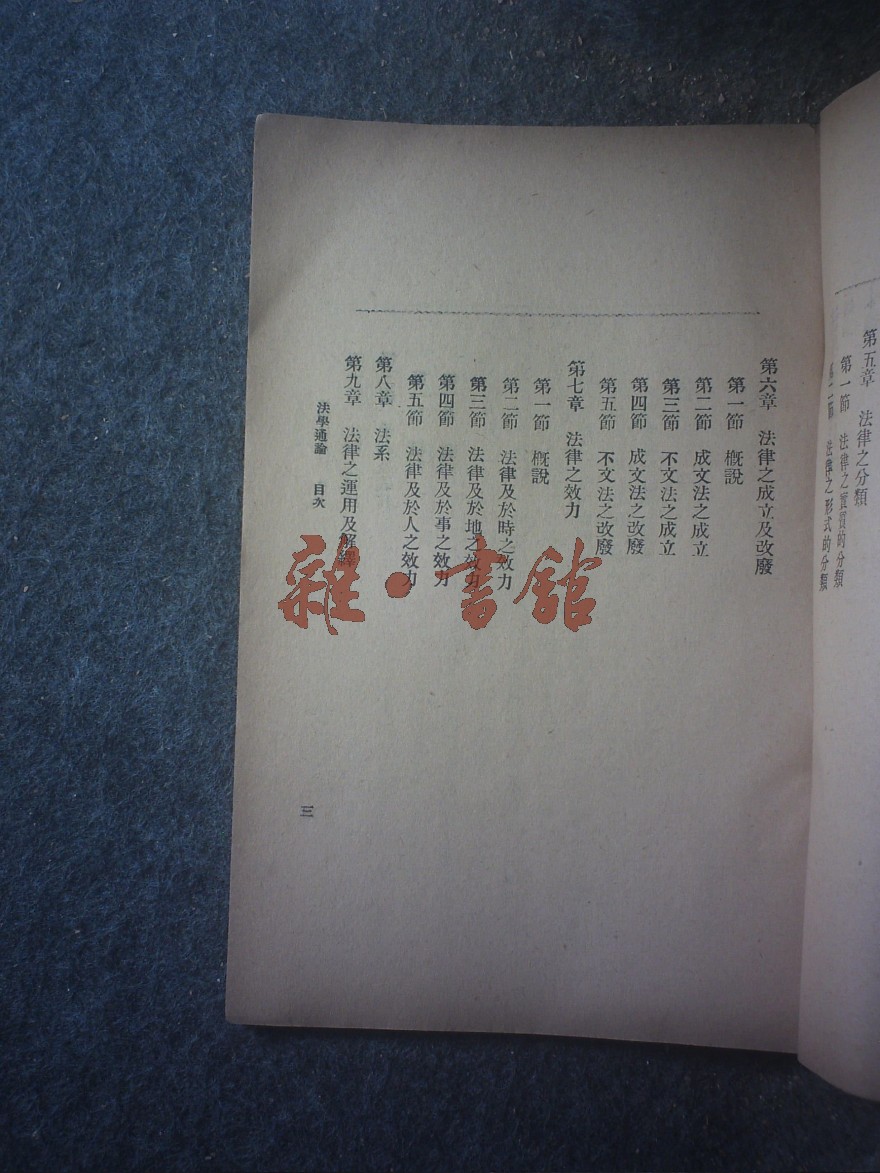 第五章　法律之分類
第一節　法律之實質的分類
第二節　法律之形式的分類
第六章　法律之成立及改廢
第一節　概說
第二節　成文法之成立
第三節　不文法之成立
第四節　成文法之改廢
第五節　不文法之改廢
第七章　法律之效力
第一節　概說
第二節　法律及於時之效力
第三節　法律及於地之效力
第四節　法律及於事之效力
第五節　法律及於人之效力
第八章　法系
第九章　法律之運用及解釋
法學通論　目次
三
雜·書館